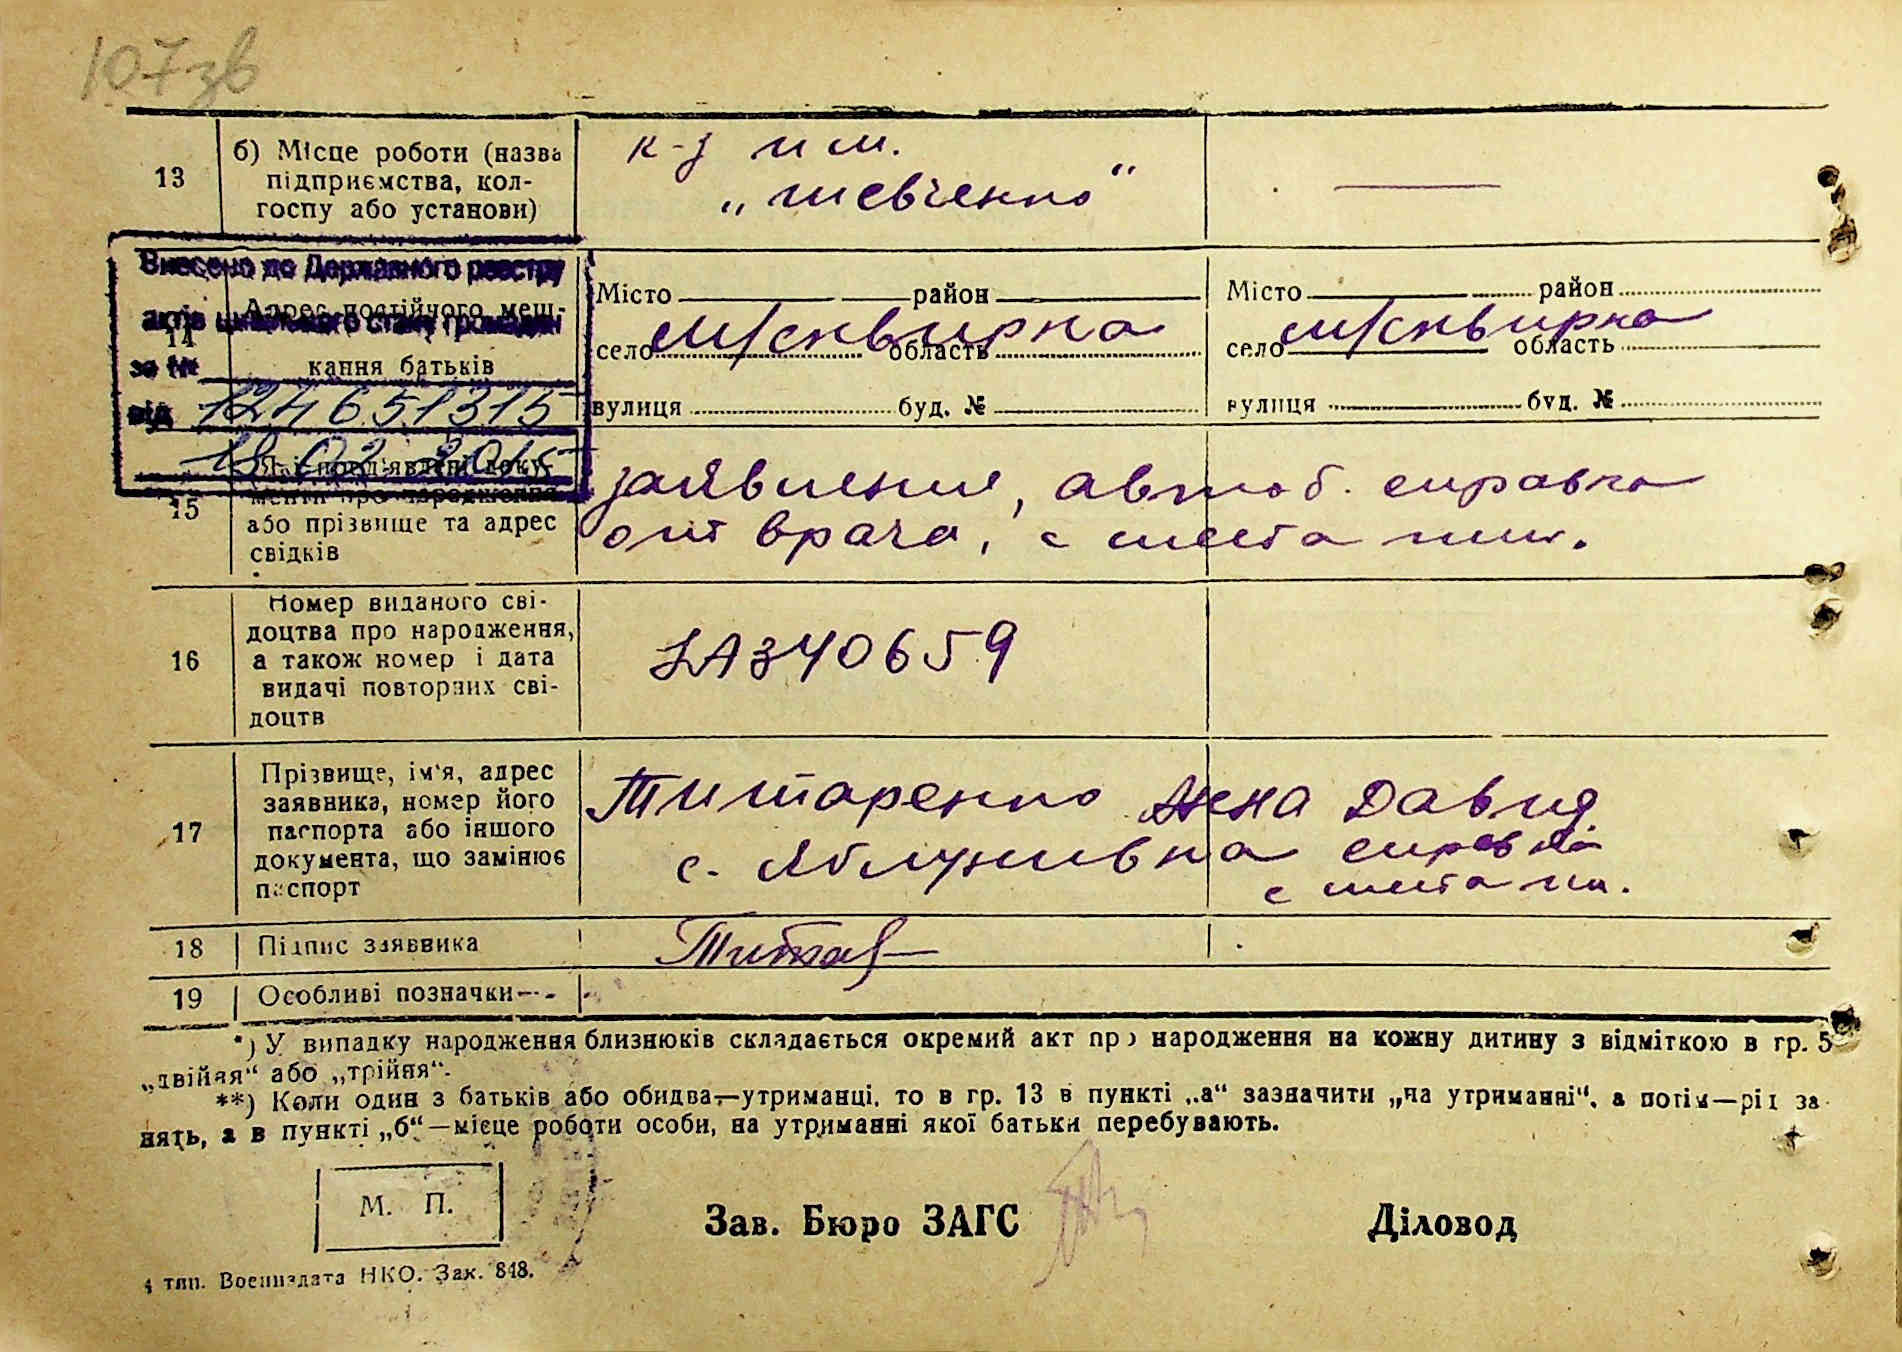 107зв
13
б) Місце роботи (назва
підприємства, кол-
госпу або установи)
к-з им.
„Шевченко“
Внесено до Державного реєстру
актів цивільного стану громадян
за №
від 124651315
18 02 2015
14
Адрес постійного меш-
кання батьків
Місто район
село М/Сквирка область
вулиця буд. №
Місто район
село М/Сквирка область
вулиця буд. №
15
Які пред'явлені доку-
менти про народження
або прізвище та адрес
свідків
заявление, автоб. справка
от врача, с места
16
Номер виданого сві-
доцтва про народження,
а також номер і дата
видачі повторних сві-
доцтв
340659
17
Прізвище, ім'я, адрес
заявника, номер його
паспорта або іншого
документа, що замінює
паспорт
Титаренко Анна Давид.
с. Яблунивка справка
с места
18
Підпис заявника
19
Особливі позначки
*) У випадку народження близнюків складається окремий акт про народження на кожну дитину з відміткою в гр. 5
„двійня“ або „трійня“.
**) Коли один з батьків або обидва—утриманці, то в гр. 13 в пункті „а“ зазначити „на утриманні“, а потім—рід за-
нять, а в пункті „б“—місце роботи особи, на утриманні якої батьки перебувають.
М. П.
Зав. Бюро ЗАГС
Діловод
4 тип. Воениздата НКО. Зак. 848.